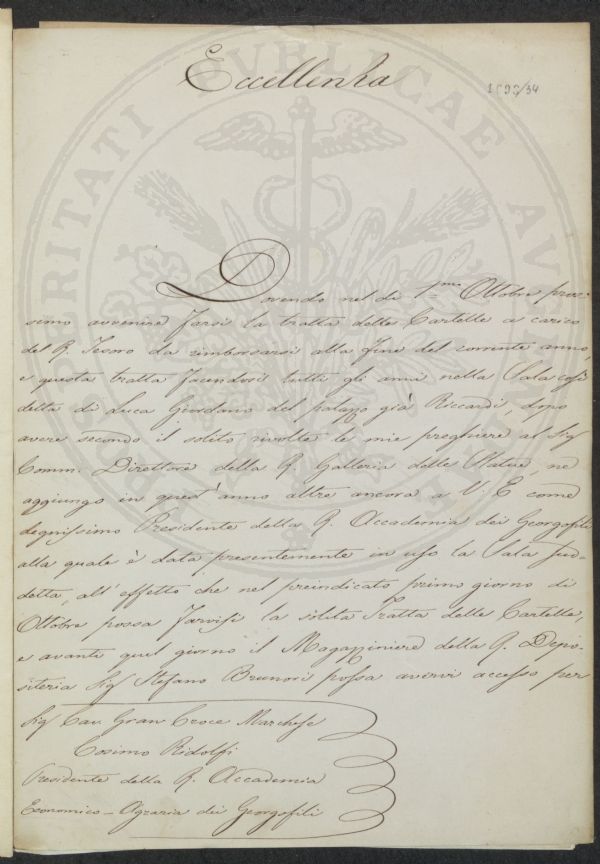 Eccellenza
1893/34
Dovendo nel dì 1mo Ottobre pros-
simo avvenire farsi la tratta delle Cartelle a carico
del R. Tesoro da rimborsarsi alla fine del corrente anno,
e questa tratta facendosi tutti gli anni nella Sala così
detta di Luca Giordano del palazzo già Riccardi, dopo
avere secondo il solito rivolte le mie preghiere al Sig
Comm. Direttore della R. Galleria delle Statue, ne
aggiungo in quest'anno altre ancora a V. E come
degnissimo Presidente della R. Accademia dei Georgofili
alla quale è data presentemente in uso la Sala sud-
detta, all'effetto che nel preindicato primo giorno di
Ottobre possa farvisi la solita Tratta delle Cartelle,
e avanti quel giorno il Magazziniere della R. Depo-
siteria Sig Stefano Brunori possa avervi accesso per
Sig Cav. Gran Croce Marchese
Cosimo Ridolfi
Presidente della R. Accademia
Economico-Agraria dei Georgofili
PROSPERITATI PVBLICAE AVGENDAE